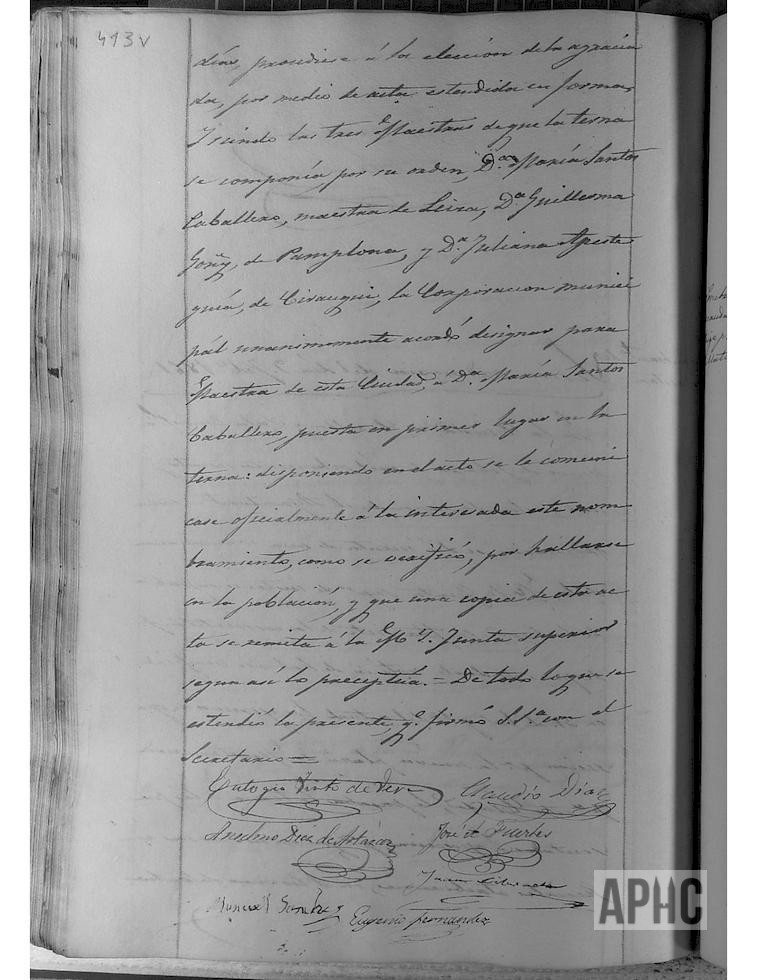 413v
días, procediese á la elección de la agracia
da, por medio de acta estendida en forma,
Y siendo las tres Maestras de que la terna
se componía por su orden D.ª María Santos
Caballero, maestra de Leiza, D.ª Guillerma
Goñy, de Pamplona, y D.ª Juliana Apeste
guía, de Cirauqui, la Corporacion munici
pál unanimemente acordó designar para
Maestra de esta Ciudad, a D.ª María Santos
Caballero puesta en primer lugar en la
terna: disponiendo en el acto se le comuni
case oficialmente á la interesada este nom
bramiento, como se verificó, por hallarse
en la población, y que una copia de esta ac
ta se remita á la M. Y. Junta superior
segun así lo preceptúa.= De todo lo que se
estendió la presente, q.e firmó S.S.ª con el
Secretario=
Claudio Diaz
Anselmo Diez de Artazcoz
José de Fuertes
Manuel Sanchez
Eugenio Fernandez
APHC